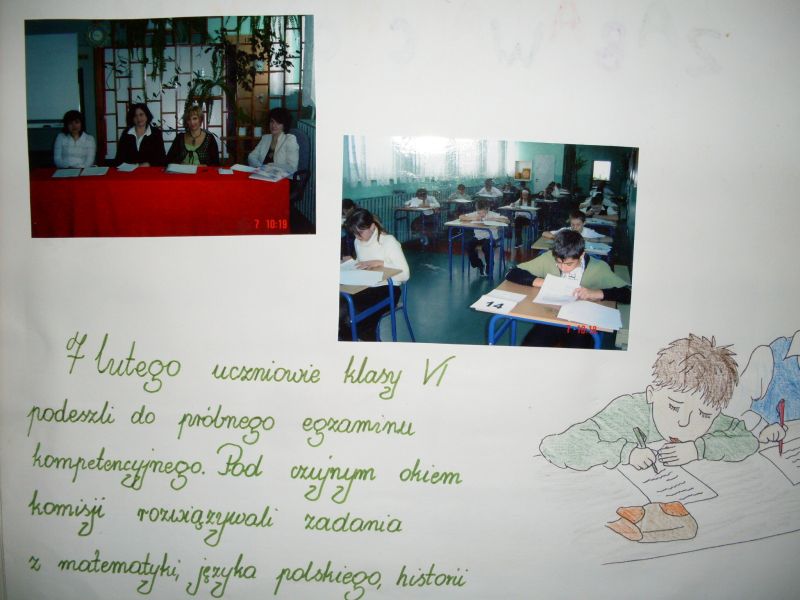 7 10:19
14
7 10:19
7 lutego uczniowie klasy VI
podeszli do próbnego egzaminu
kompetencyjnego. Pod czujnym okiem
komisji rozwiązywali zadania
z matematyki, języka polskiego, historii